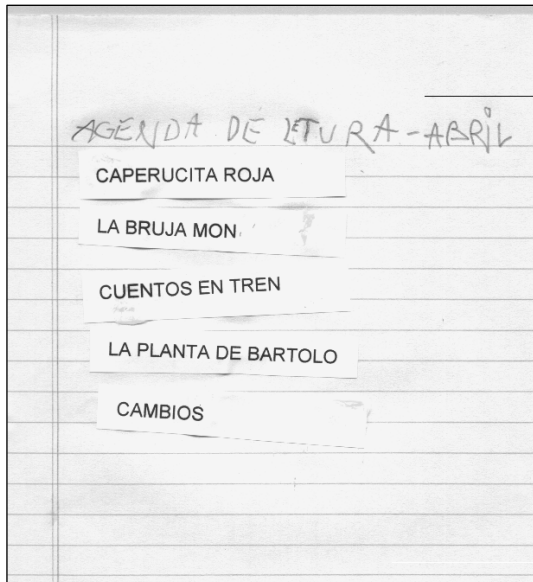 AGENDA DE LETURA-ABRIL
CAPERUCITA ROJA
LA BRUJA MON
CUENTOS EN TREN
LA PLANTA DE BARTOLO
CAMBIOS